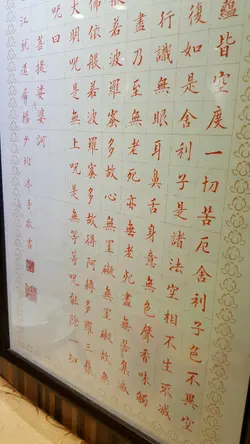 蘊皆空度一切苦厄舍利子色不異空
復如是舍利子是諸法空相不生不滅
行識無眼耳鼻舌身意無色聲香味觸
盡乃至無老死亦無老死盡無苦集滅
般若波羅蜜多故心無罣礙無罣礙故無
佛依般若波羅蜜多故得阿耨多羅三藐
大明呪是無上呪是無等等呪能除一切
呪曰
菩提娑婆訶
沐手敬書